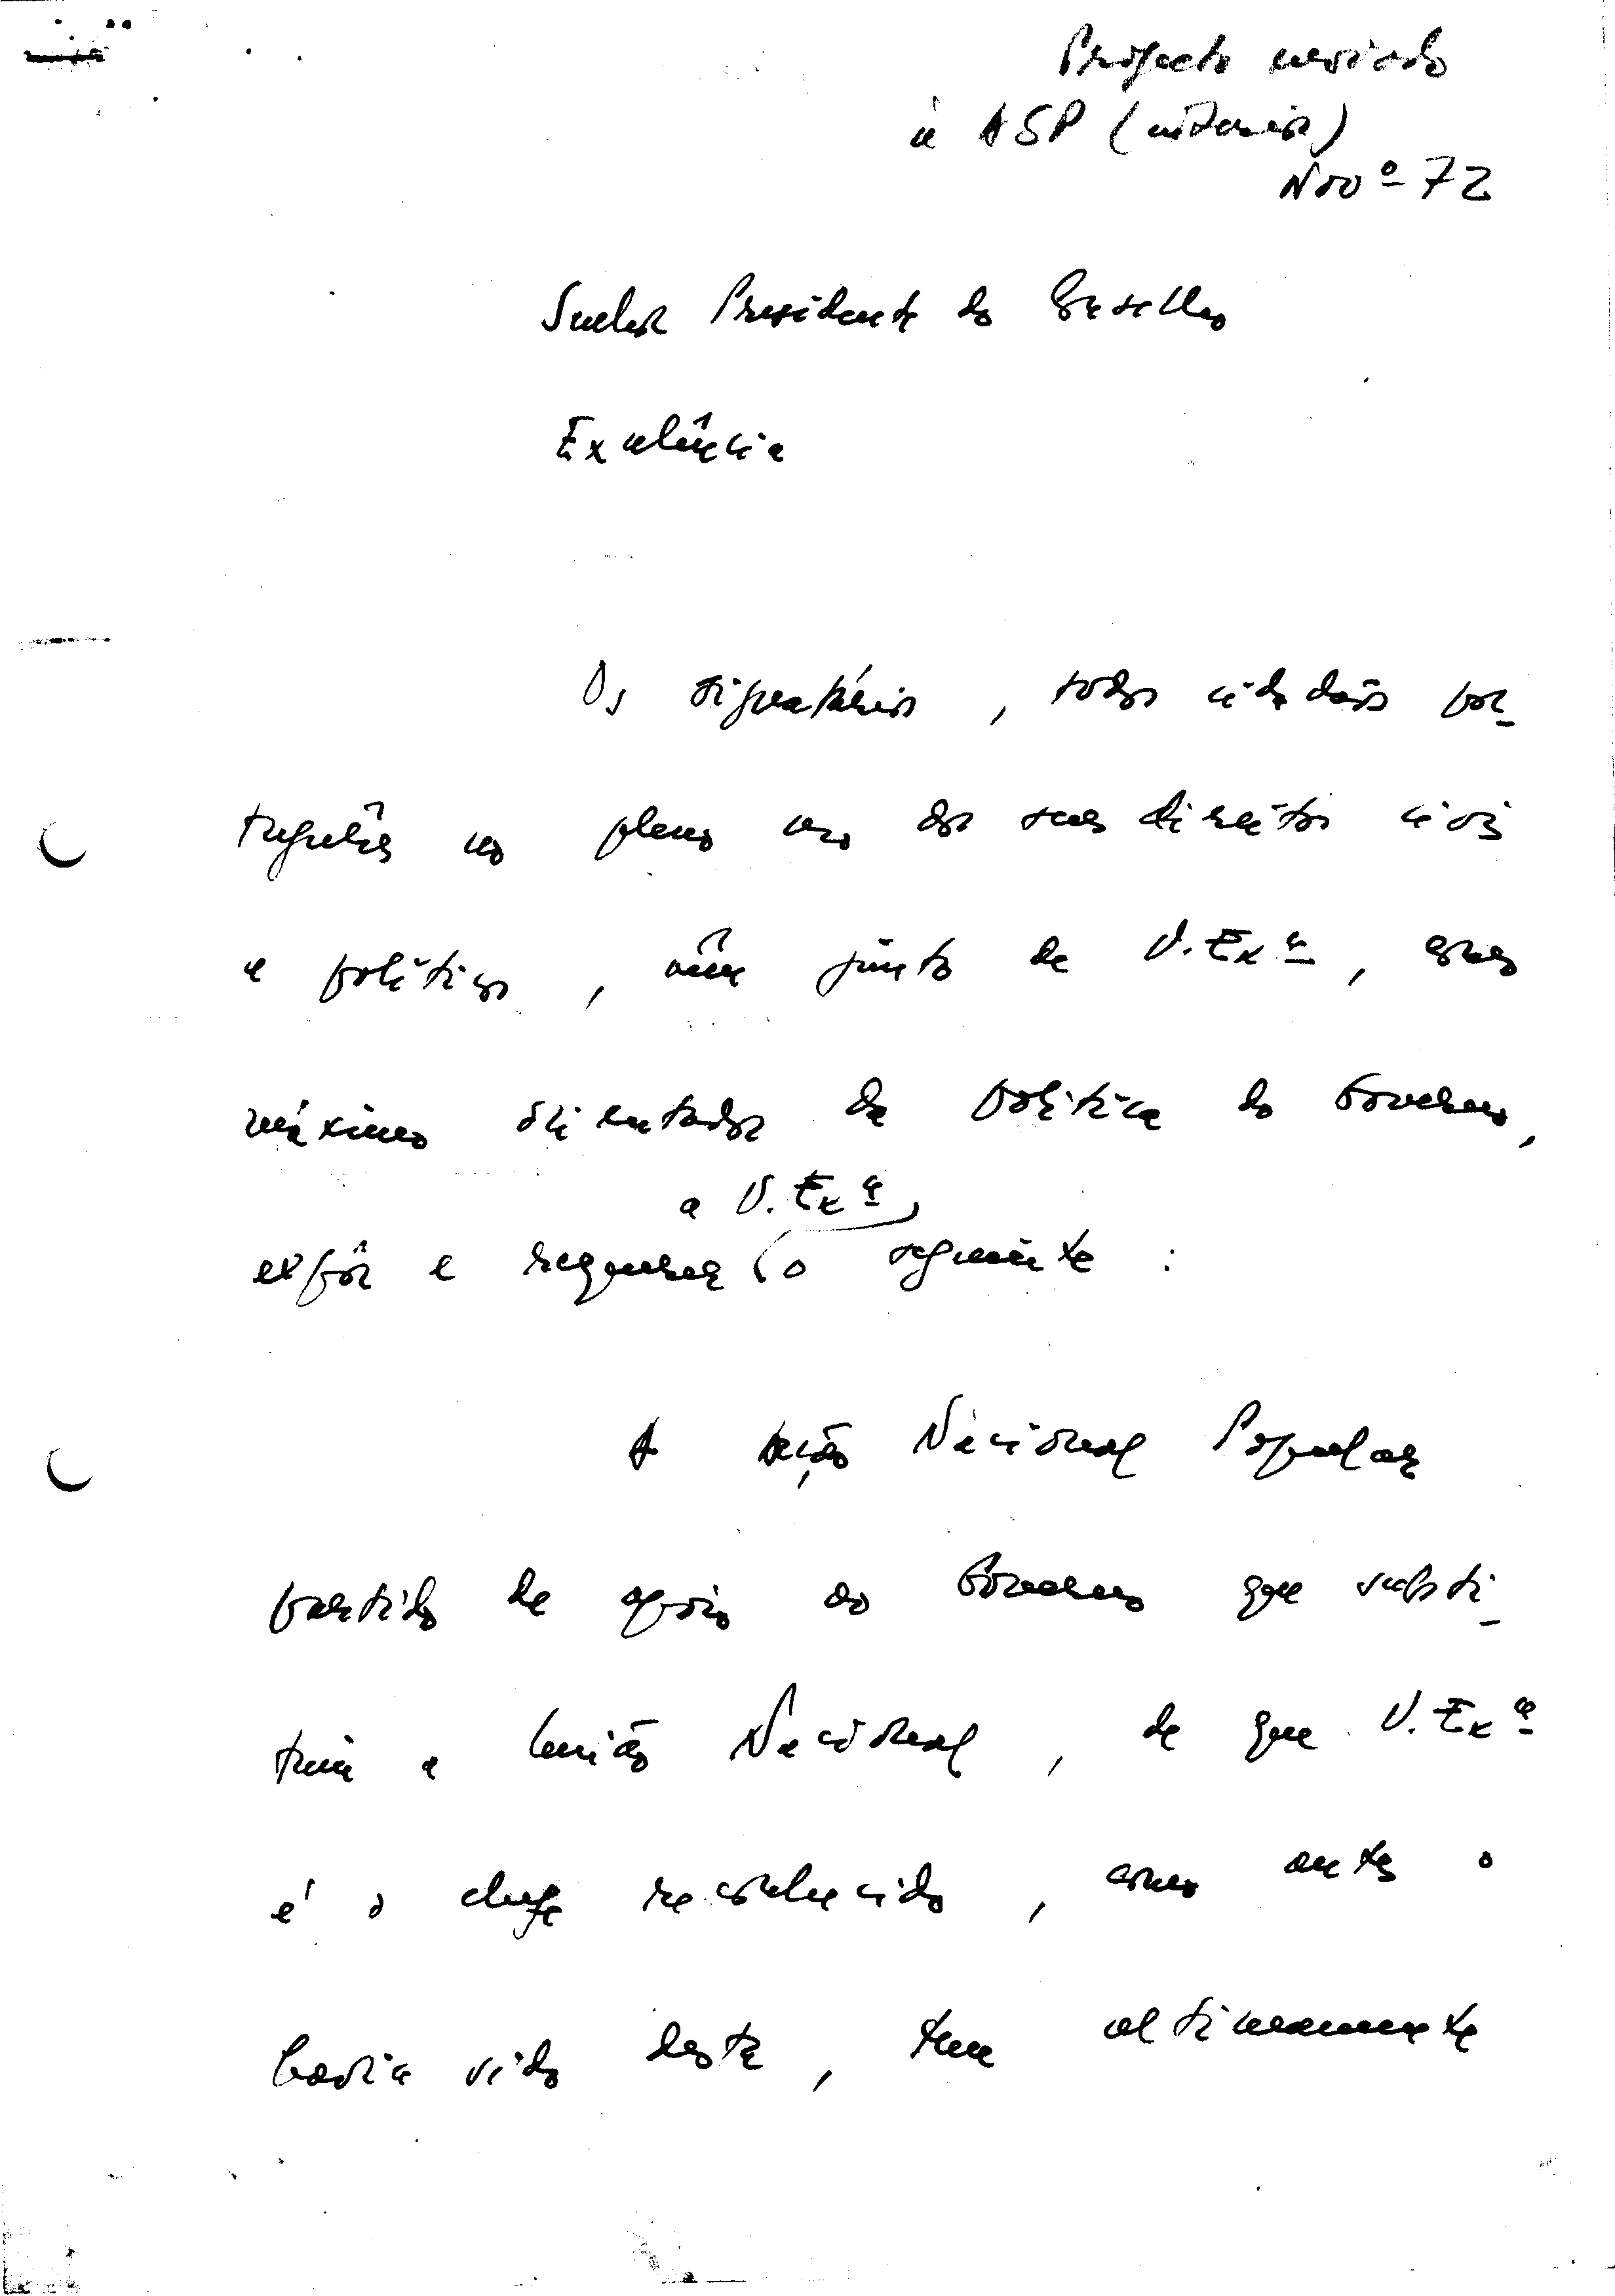 Projecto enviado
à ASP (interior)
Novº 72
Senhor Presidente do Conselho
Excelência
Os signatários, todos cidadãos por-
tugueses no pleno uso dos seus direitos civis
e políticos, vêm junto de V. Exª, como
máximo orientador da política do Governo,
a V. Exª,
expôr e requerer o seguinte :
A Acção Nacional Popular
partido de apoio ao Governo que substi-
tuiu a União Nacional, de que V. Exª
é o chefe reconhecido, como antes o
havia sido desta, tem ultimamente